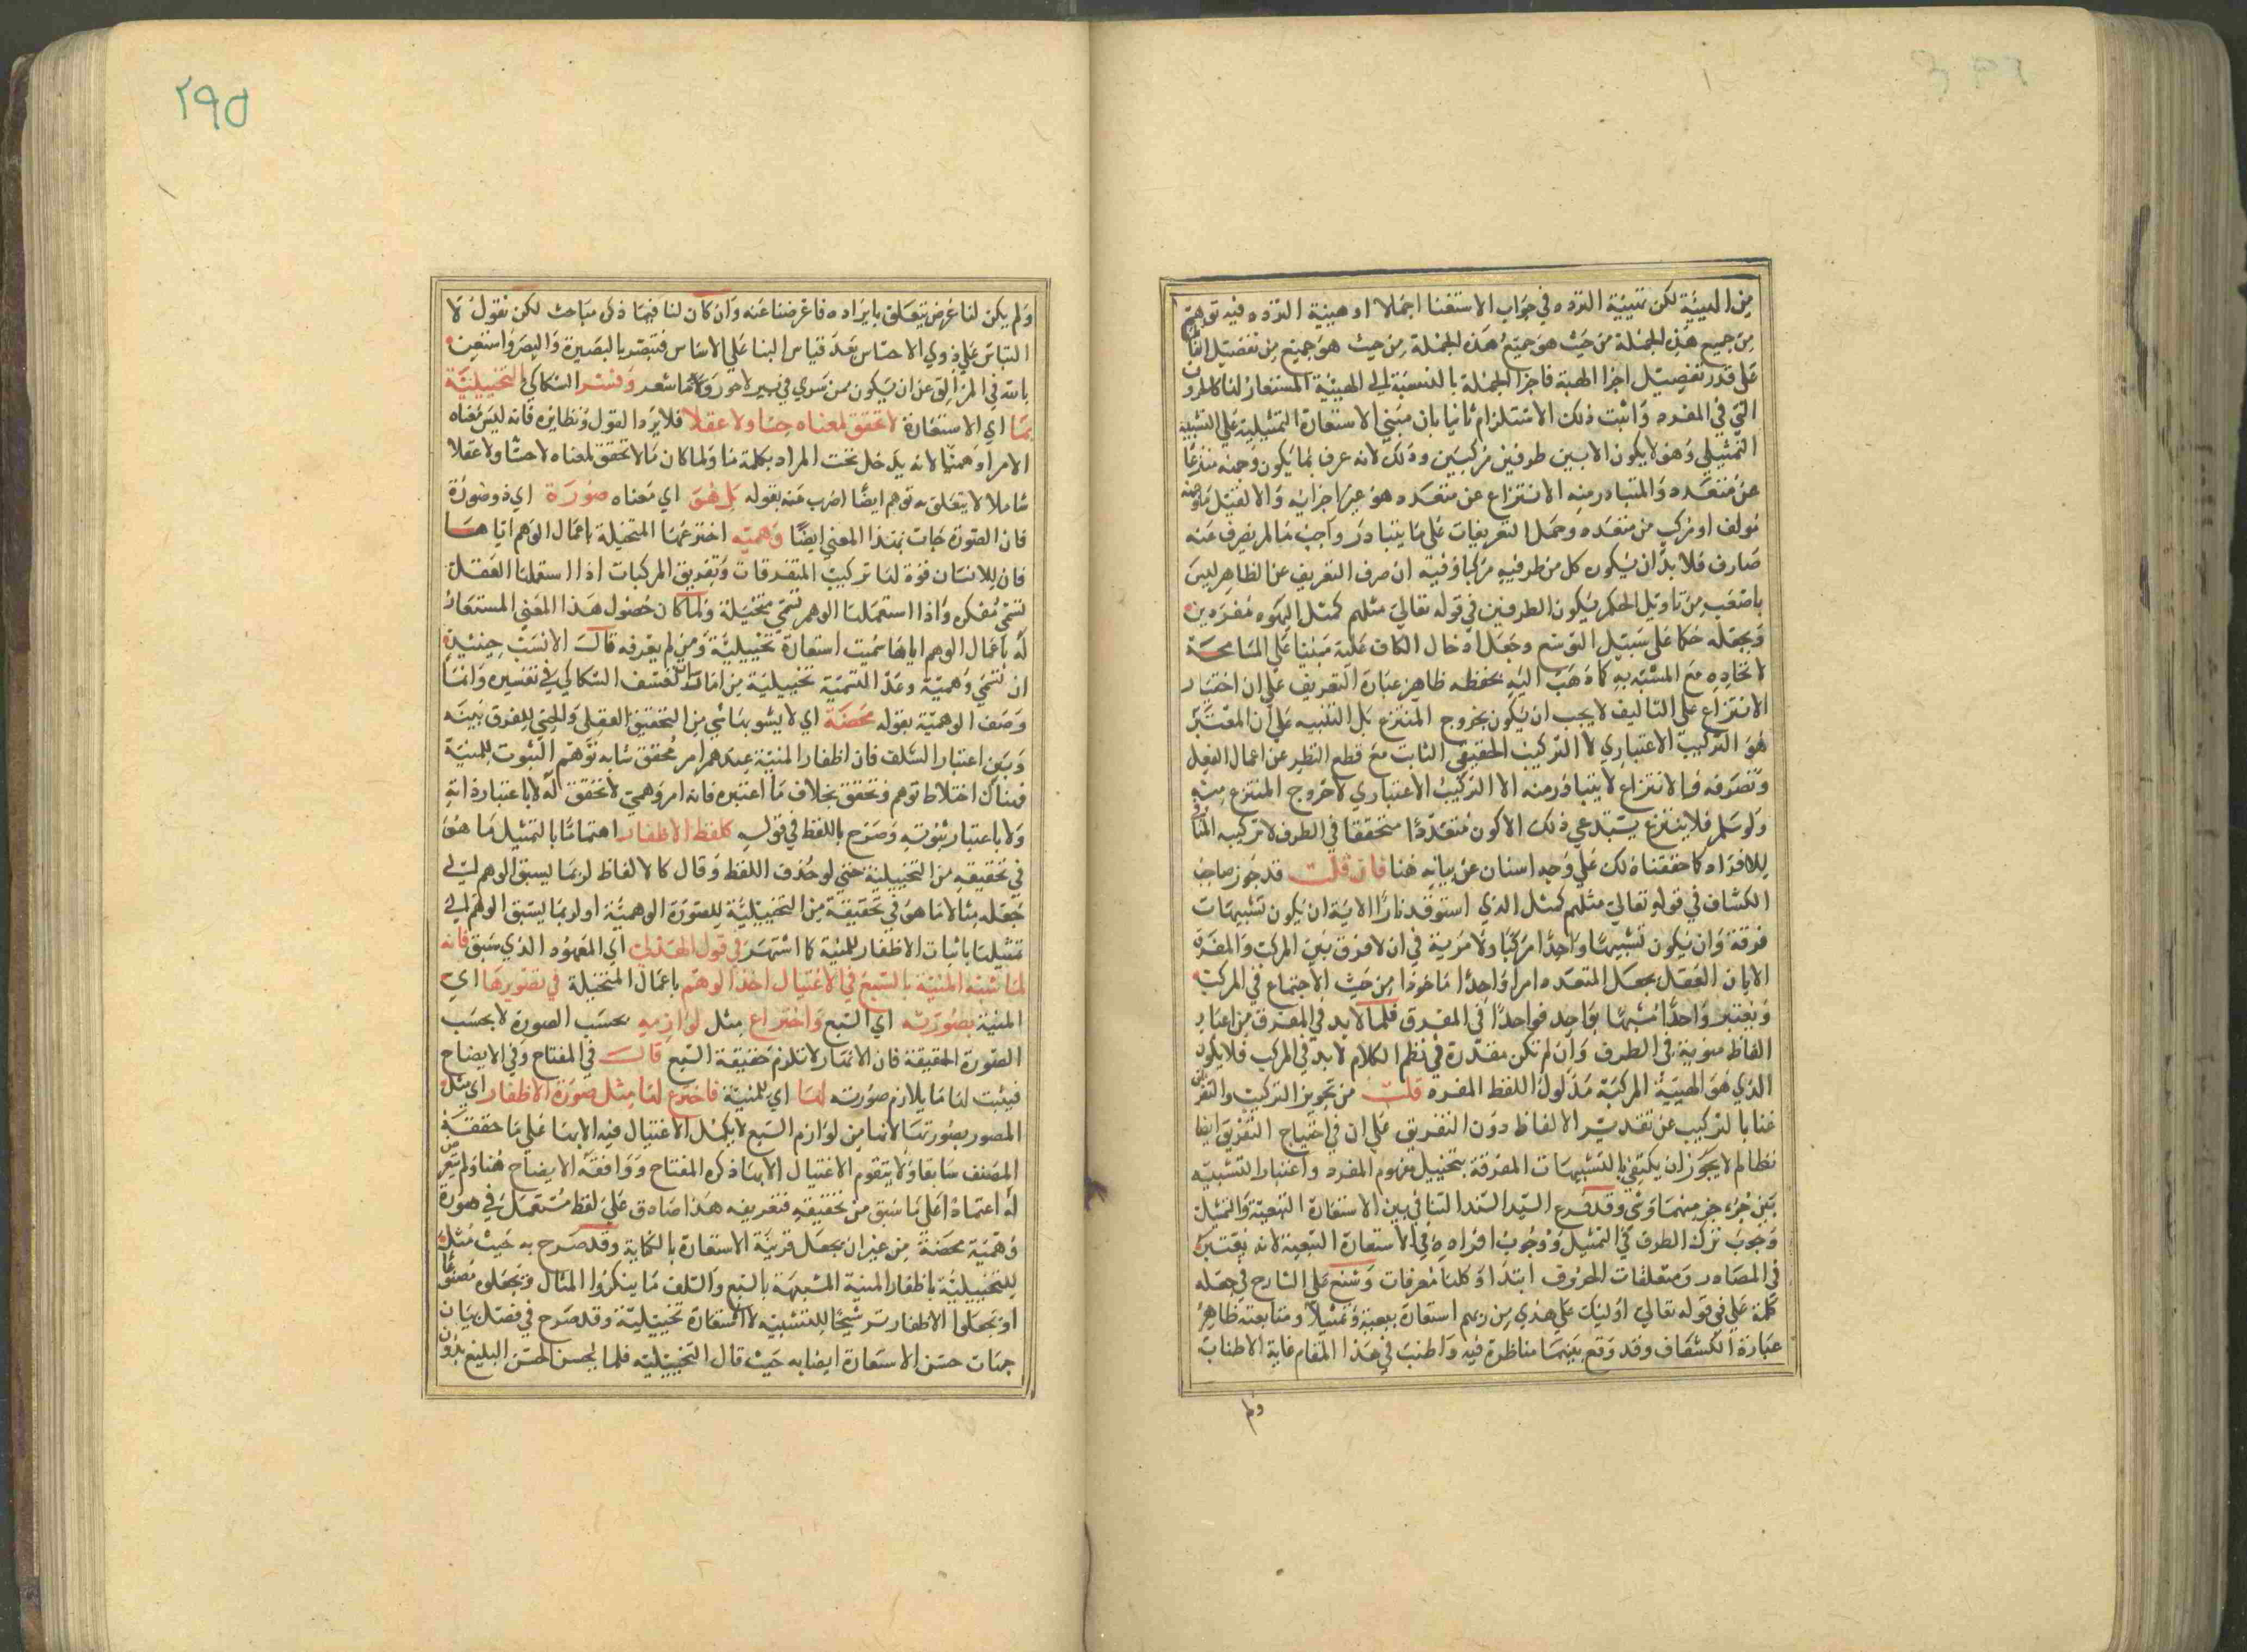 من الهيئة لكن تبيئة التردد في جواب الاستفنا اجمالا او هيئة التردد فيه توهم
من جميع هذه الجملة من حيث هو جميع هذه الجملة من حيث هو جميع من تفصيل
على قدر تفصيل اجزا الهيئة فاجزا الجملة بالنسبة الى الهيئة المستعار لنا كالحروف
التي في المفرد واثبت ذلك الاستلزام ثانيا بان مبني الاستعارة التمثيلية على التشبيه
التمثيلي وهو لا يكون الا بين طرفين مركبين وذلك لانه عرف بما يكون وجهه منتزعا
عن متعدد والمتبادر منه الانتزاع عن متعدد هو عين اجزايه والا لقيل ما وجهه
مولف او مركب من متعدد وحمل التعريفات على ما يتبادر واجب ما لم يصرف عنه
صارف فلا بد ان يكون كل من طرفيه مركبا وفيه ان صرف التعريف عن الظاهر ليس
باصعب من تاويل الحكم بكون الطرفين في قوله تعالى مثلهم كمثل اليهود مفردين
وبجعله حكما على سبيل التوسع وجعل ادخال الكاف عليه مبنيا على المسامحة
لاتحاده مع المشبه به كما ذهب اليه بحفظه ظاهر عبارة التعريف على ان اختيار
الانتزاع على التاليف لا يجب ان يكون بخروج المنتزع بل التنبيه على ان المعتبر
هو التركيب الاعتباري لا التركيب الحقيقي الثابت مع قطع النظر عن اعمال العقل
وتصرفه فالانتزاع لا يتبادر منه الا التركيب الاعتباري لا خروج المنتزع منه
ولو سلم فلا ينتزع يستدعي ذلك الا كون متعددا متحققا في الطرف لا تركيبه
للافراد كما حققناه لك على وجه اسنان عن بيانه هنا فان قلت قد جوز صاحب
الكشاف في قوله تعالى مثلهم كمثل الذي استوقد نارا الاية ان يكون تشبيهات
فرقة وان يكون تشبيها واحدا مركبا ولا مزية في ان لا فرق بين المركب والمفرد
الا بان العقل يجعل المتعدد امرا واحدا ماخوذا من حيث الاجتماع في المركب
ويعتبر واحدا مشبها بواحد فواحدا في المفرق فكما لا بد في المفرق من اعتبار
الفاظ منوية في الطرف وان لم تكن مقدرة في نظم الكلام لا بد في المركب فلا يكون
الذي هو الهيئة المركبة مدلول اللفظ المفرد قلت من تجويز التركيب والتفريق
غنا بالتركيب عن تقدير الالفاظ دون التفريق على ان في احتياج التفريق ايضا
نظرا لم لا يجوز ان يكتفي بالتشبيهات المفرقة بتخييل مفهوم المفرد واعتبار التشبيه
بين جزء جزء منهما وشي وقد فرع السيد السند التنافي بين الاستعارة التبعية والتمثيلية
وجوب ترك الطرف في التمثيل ووجوب افراده في الاستعارة التبعية لانه يعتبر
في المصادر ومتعلقات الحروف ابتداء وكلها مفردات وشنع على الشارح في جعله
كلمة على في قوله تعالى اوليك على هدي من ربهم استعارة تبعية وتمثيلا ومتابعة ظاهر
عبارة الكشاف وقد وقع بينهما مناظرة فيه واطنب في هذا المقام غاية الاطناب
ولم
٢٩٥
ولم يكن لنا غرض يتعلق بايراده فاعرضنا عنه وان كان لنا فيما ذكر مباحث لكن نقول لا
التباس على ذوي الاحساس بعد قياس البنا على الاساس فتبصر بالبصيرة والبصر واستعن
بالله في المزالق عن ان يكون من سري في بير لاحور وما شعر وفسر السكاكي التخييلية
بما اي الاستعارة لا تحقق لمعناه حسا ولا عقلا فلا يرد القول ونظايره فانه ليس معناه
الامرا وهميا لانه يدخل تحت المراد بكلمة ما ولما كان ما لا تحقق لمعناه لا حسا ولا عقلا
شاملا لا يتعلق به توهم ايضا اضرب عنه بقوله بل هو اي معناه صورة اي ذو صورة
فان الصورة جات بهذا المعني ايضا وهمية اخترعها المتخيلة باعمال الوهم اياها
فان للانسان قوة لها تركيب المتفرقات وتفريق المركبات اذا استعملها العقل
تسمى مفكرة واذا استعملها الوهم تسمى متخيلة ولما كان حصول هذا المعنى المستعار
له باعمال الوهم اياها سميت استعارة تخييلية ومن لم يعرفه قال الانسب حينئذ
ان تسمى وهمية وعد التسمية تخييلية من امارات تعسف السكاكي في تفسيره وانما
وصف الوهمية بقوله محضة اي لا يشوبها شي من التحقيق العقلي والحسي للفرق بينه
وبين اعتبار السلف فان اظفار المنية عندهم امر محقق شابه توهم الثبوت للمنية
فهناك اختلاط توهم وتحقق بخلاف ما اعتبره فانه امر وهمي لا تحقق له لا باعتبار ذاته
ولا باعتبار ثبوته وصرح باللفظ في قوله كلفظ الاظفار اهتماما بالتمثيل ما هو
في تحقيقه من التخييلية حتى لو حذف اللفظ وقال كالالفاظ لربما يسبق الوهم الى
جعله مثالا ما هو في تحقيقة من التخييلية للصورة الوهمية او لربما يسبق الوهم الى
تمثيلها باثبات الاظفار للمنية كما اشتهر في قول الهذلي اي المعهود الذي سبق فانه
لما شبه المنية بالسبع في الاغتيال اخذ الوهم باعمال المتخيلة في تصويرها اي
المنية بصورته اي السبع واختراع مثل لوازمه بحسب الصورة لا بحسب
الصورة الحقيقة فان الاثمار لا تلزم حقيقة السبع قال في المفتاح وفي الايضاح
فيثبت لها ما يلازم صورته لها اي للمنية فاخترع لها مثل صورة الاظفار اي مثل
المصور بصورتها لانها من لوازم السبع لا يكمل الاغتيال فيه الا بها على ما حققه
المصنف سابقا ولا يتقوم الاغتيال الا بها ذكره المفتاح ووافقه الايضاح هنا ولم يتعرض
له اعتمادا على ما سبق من تحقيقه فتعريفه هذا صادق على لفظ مستعمل في صورة
وهمية محضة من غير ان يجعل قرينة الاستعارة بالكناية وقد صرح به حيث مثل
للتخييلية باظفار المنية المشبهة بالسبع والسلف ما ينكروا المثال ويجعلوه مصنوعا
او يجعلوا الاظفار ترشيحا للتشبيه لا استعارة تخييلية وقد صرح في فصل بيان
جهات حسن الاستعارة ايضا به حيث قال التخييلية فلما يحسن الحسن البليغ بدون